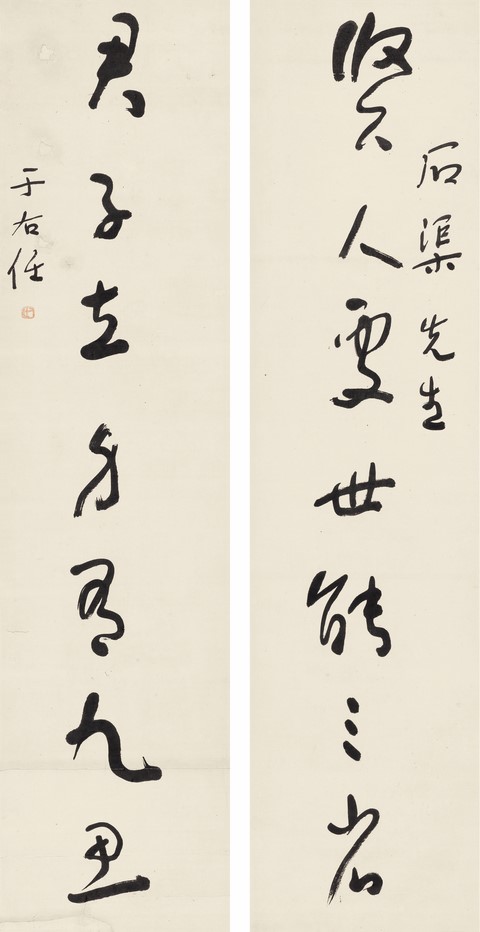 石渠先生
賢人處世能三省
君子立身有九思
于右任